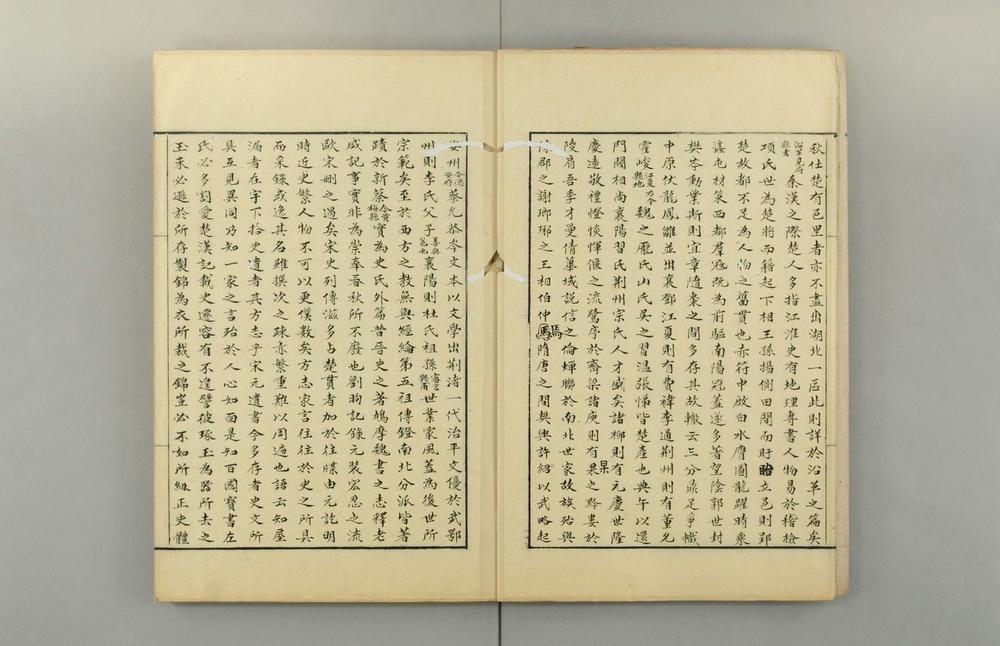 狄仕楚有邑里者亦不盡出湖北一區此則詳於沿革之篇矣
沿革見府縣考秦漢之際楚人多指江淮史有地理專書人物易於稽檢
項氏世為楚將而籍起下相王孫揚側田間而盱眙立邑則郢
楚故都不足為人物之舊貫也赤符中啟白水膺圖龍躍時乘
蓋屯材策西都羣寇既為前驅南陽冠蓋遂多著望陰郭世封
樊岑勳業斯則宜章隨棗之間多存其故轍云三分鼎足爭幟
中原伏龍鳳雛並出襄鄧江夏則有費禕李通荊州則有董允
霍峻江夏乃今縣地魏之龐氏山氏吳之習溫張悌皆楚產也典午以還
門閥相尚襄陽習氏荊州宗氏人才盛矣諸柳則有元慶世隆
慶遠敬禮惔惲偃之流鷺序於齊梁諸庾則有杲之黔婁於
陵肩吾季才曼倩蓽域説信之倫蟬聯於南北世家故族殆與
陳郡之謝瑯琊之王相伯仲焉隋唐之間樊興許紹以武略起
安州今德安府蔡允恭岑文本以文學出荊渚一代治平文優於武鄂
州則李氏父子善與邕也襄陽則杜氏祖孫審言與甫世業家風蓋為後世所
宗範矣至於西方之教無與經綸第五祖傳鐙南北分派皆著
蹟於新蔡今黃梅縣實為史氏外篇昔晉史之著鳩摩魏書之志釋老
咸記事實非為崇奉春秋所不廢也劉昫記錄元裝宏忍之流
歐宋刪之過矣宋史列傳滋多占楚貫者加於往牒由元訖明
時近史繁人物不可以更僕數矣方志家言往往於史之所具
而采錄或逸其名雖撰次之疎亦繁重難以周遍也語云知屋
漏者在宇下拾史遺者其方志乎宋元遺書今多存者史文所
具互見異同乃知一家之言殆於人心如面是知百國寶書左
氏必多割愛楚漢記載史遷容有不遑譬彼琢玉為器所去之
玉未必遜於所存製錦為衣所裁之錦豈必不如所紉正史體